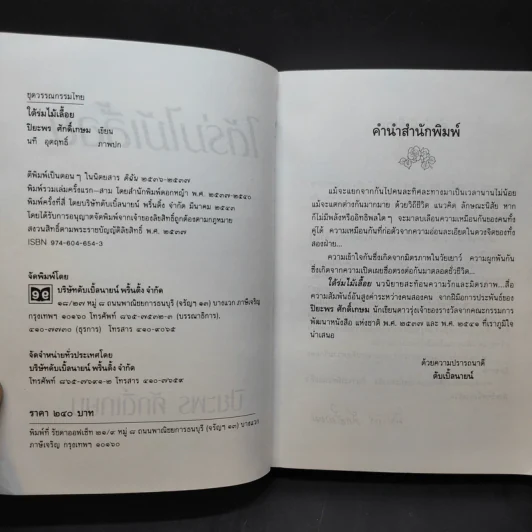 ชุดวรรณกรรมไทย
ใต้ร่มไม้เลื้อย
ปิยะพร ศักดิ์เกษม เขียน
นที อุตฤทธิ์ ภาพปก
ตีพิมพ์เป็นตอนๆ ในนิตยสาร ดิฉัน ๒๕๓๖-๒๕๓๗
พิมพ์รวมเล่มครั้งแรก-สาม โดยสำนักพิมพ์ดอกหญ้า พ.ศ. ๒๕๓๗-๒๕๔๐
พิมพ์ครั้งที่สี่ โดยบริษัทดับเบิ้ลนายน์ พริ้นติ้ง จำกัด มีนาคม ๒๕๔๓
โดยได้รับการอนุญาตจัดพิมพ์จากเจ้าของลิขสิทธิ์ถูกต้องตามกฎหมาย
สงวนสิทธิ์ตามพระราชบัญญัติลิขสิทธิ์ พ.ศ. ๒๕๓๗
ISBN 974-604-654-3
จัดพิมพ์โดย
บริษัทดับเบิ้ลนายน์ พริ้นติ้ง จำกัด
๑๘/๒๗ หมู่ ๘ ถนนพาณิชยการธนบุรี (จรัญฯ ๑๓) บางแวก ภาษีเจริญ
กรุงเทพฯ ๑๐๑๖๐ โทรศัพท์ ๘๖๕-๓๕๓๒-๓ (บรรณาธิการ).
๔๑๐-๗๗๓๐ (ธุรการ) โทรสาร ๔๑๐-๙๐๖๕
จัดจำหน่ายทั่วประเทศโดย
บริษัทดับเบิ้ลนายน์ พริ้นติ้ง จำกัด
โทรศัพท์ ๘๖๕-๓๖๙๑-๒ โทรสาร ๔๑๐-๗๖๕๙
ราคา ๒๔๐ บาท
พิมพ์ที่ รัยดาออฟเซ็ท ๒๑/๙ หมู่ ๘ ถนนพาณิชยการธนบุรี (จรัญฯ ๑๓) บางแวก
ภาษีเจริญ กรุงเทพฯ ๑๐๑๖๐
คำนำสำนักพิมพ์
แม้จะแยกจากกันไปคนละทิศคนละทางมาเป็นเวลานานไม่น้อย
แม้จะแตกต่างกันมากมาย ด้วยวิถีชีวิต แนวคิด ลักษณะนิสัย หาก
ก็ไม่มีพลังหรืออิทธิพลใดๆ จะมาลบเลือนความเหมือนกันของคนทั้ง
คู่ได้ ความเหมือนกันที่ก่อตัวจากความอ่อนละเอียดในดวงจิตของทั้ง
สองฝ่าย...
ความเข้าใจกันซึ่งเกิดจากมิตรภาพในวัยเยาว์ ความผูกพันกัน
ซึ่งเกิดจากความเปิดเผยซื่อตรงต่อกันมาตลอดชั่วชีวิต...
ใต้ร่มไม้เลื้อย นวนิยายสะท้อนความรักและมิตรภาพ...สื่อ
ความสัมพันธ์อันสูงค่าระหว่างคนสองคน จากฝีมือการประพันธ์ของ
ปิยะพร ศักดิ์เกษม นักเขียนดาวรุ่งเจ้าของรางวัลจากคณะกรรมการ
พัฒนาหนังสือ แห่งชาติ พ.ศ. ๒๕๓๗ และ พ.ศ. ๒๕๔๑ ที่เราภูมิใจ
นำเสนอ
ด้วยความปรารถนาดี
ดับเบิ้ลนายน์